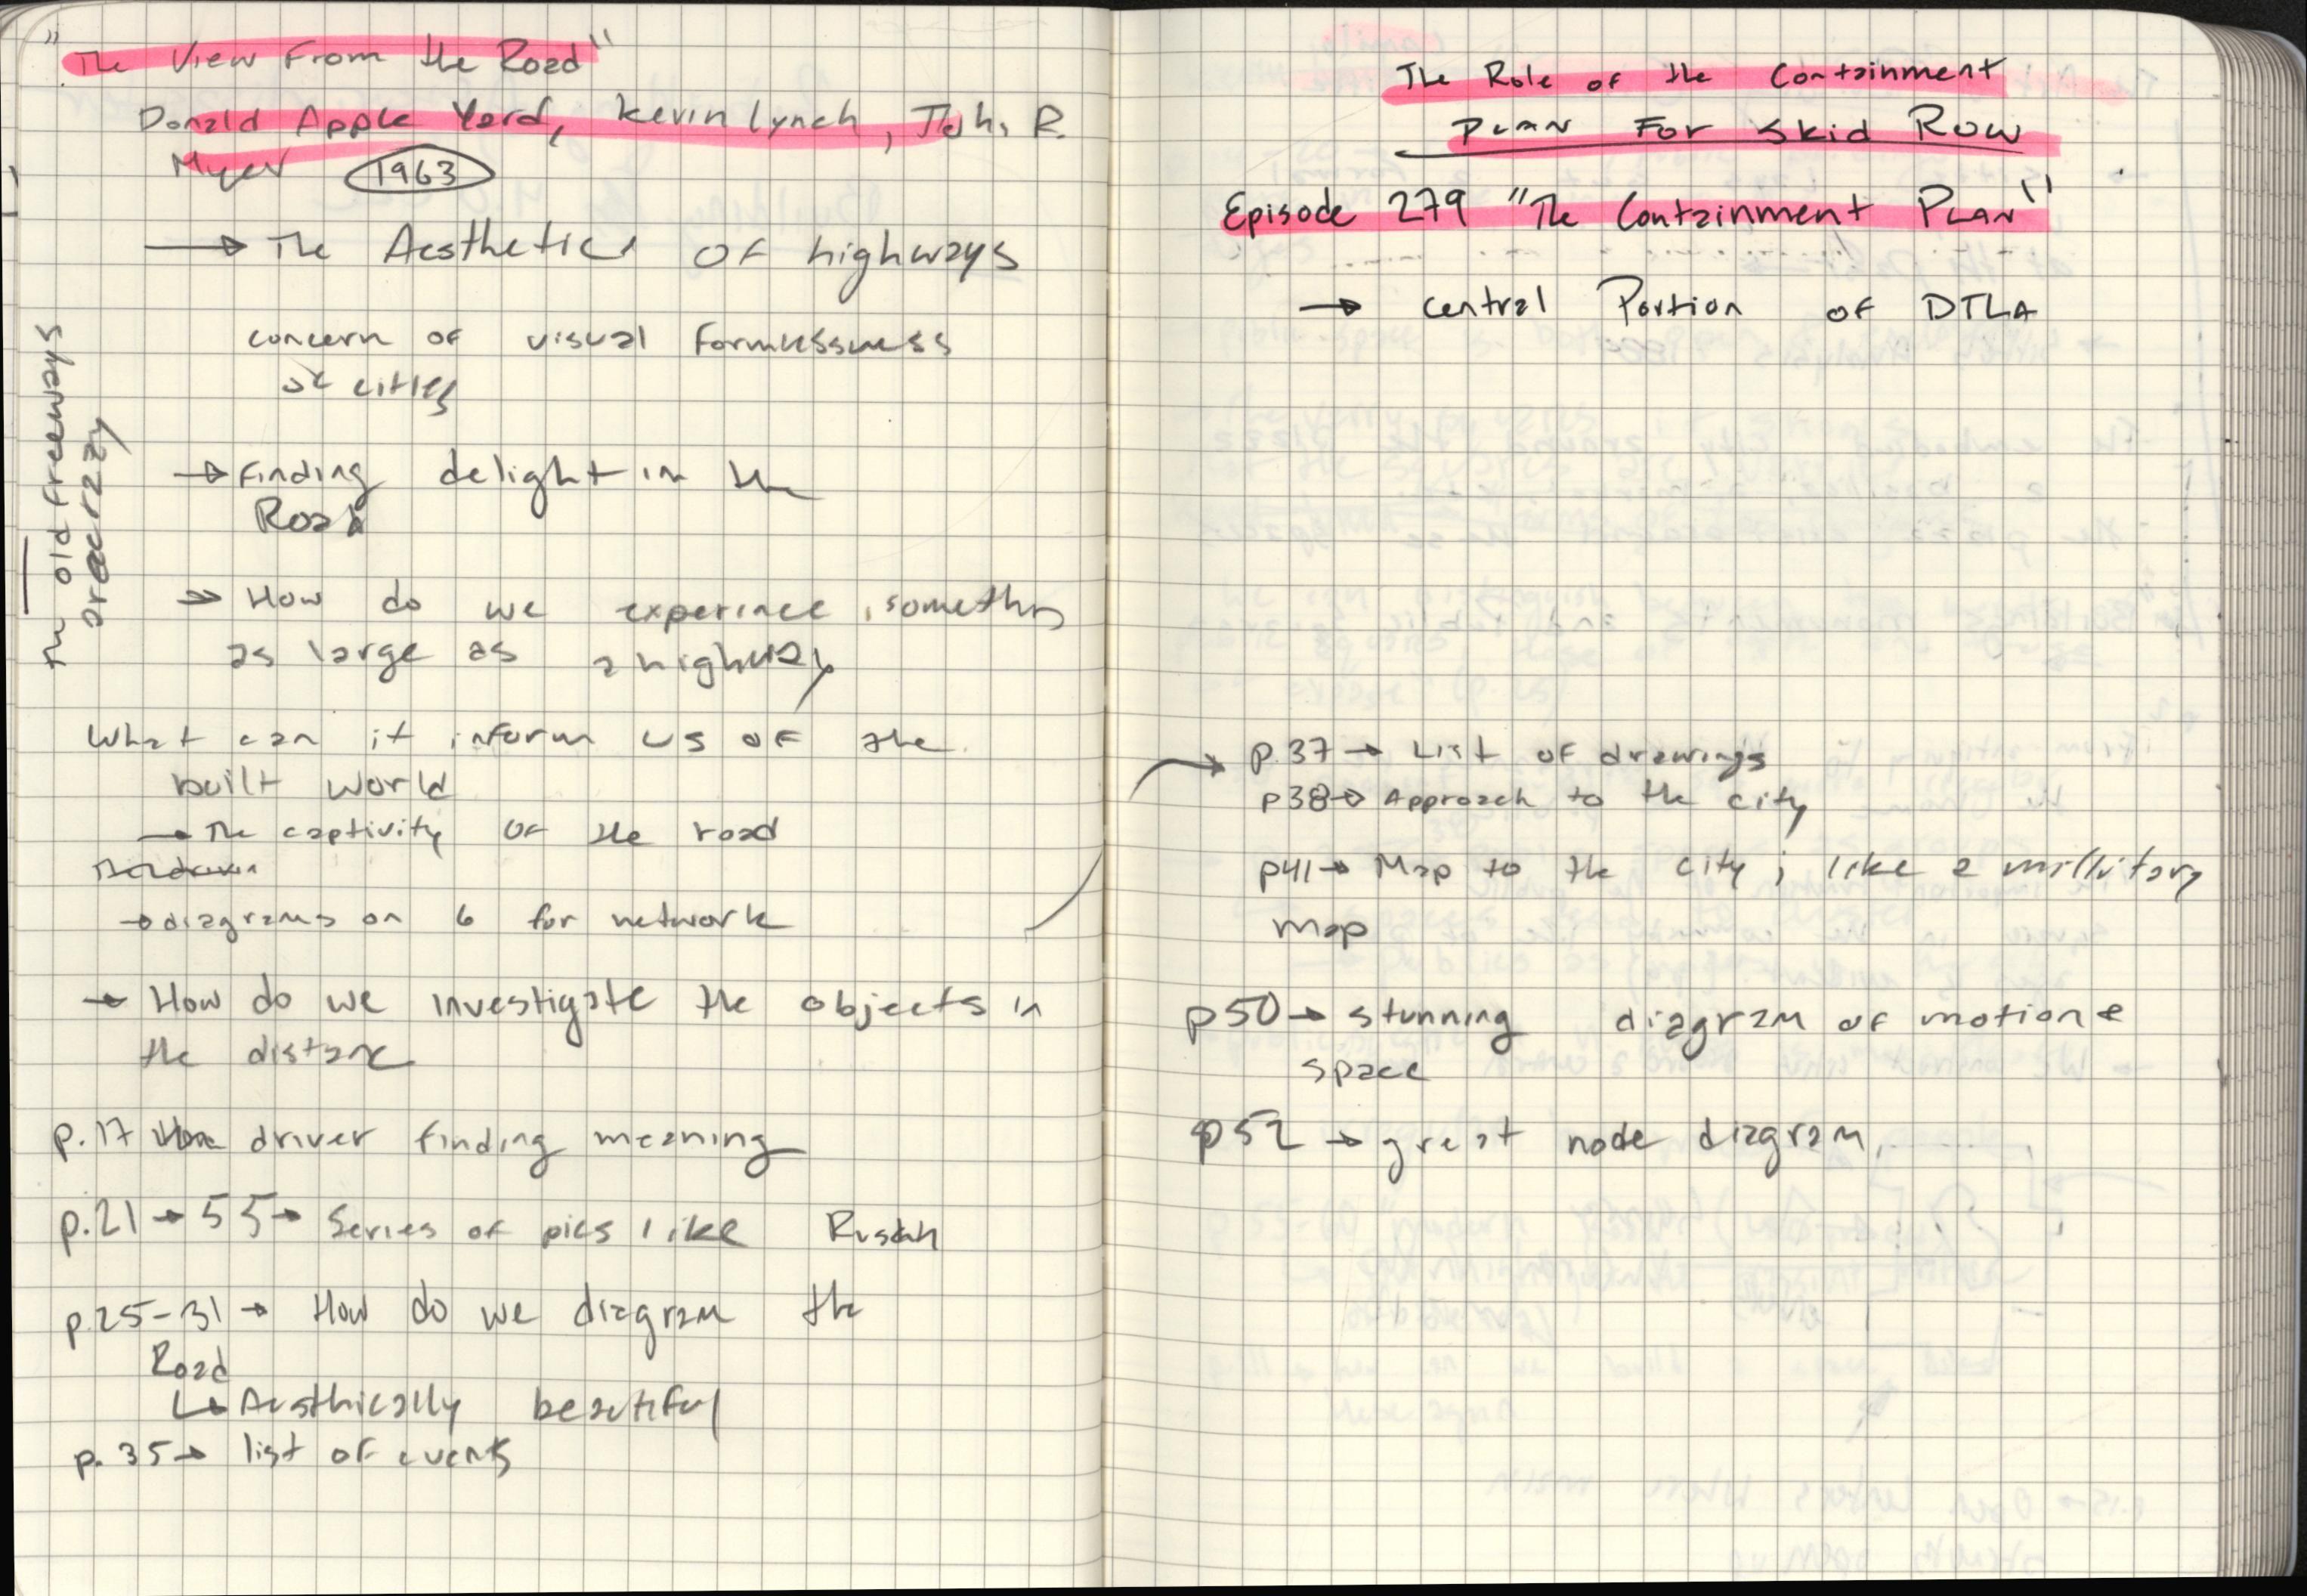 "The View From the Road"
Donald Apple Yard, Kevin Lynch, John R.
Myer 1963
→ The Aesthetics OF highways
concern OF visual formlessness
of cities
→ Finding delight in the
Road
→ How do we experince somethng
as large as a highway
The old freeways
are crazzy
What can it inform us OF the
built world
→ The captivity OF the road
→ diagrams on 6 for network
→ How do we investigate the objects in
the distance
p.17 driver finding meaning
p.21 → 55 → Series of pics like Rusch
p.25-31 → How do we diagram the
Road
↳ Aesthically beautiful
p. 35 → list of events
The Role of the Containment
PLAN FOR Skid Row
Episode 279 "The Containment PLAN"
→ central Portion OF DTLA
p.37 → List OF drawings
p38 → Approach to the city
p41 → Map to the city ; like a millitary
map
p50 → stunning diagram of motion &
space
p52 → great node diagram